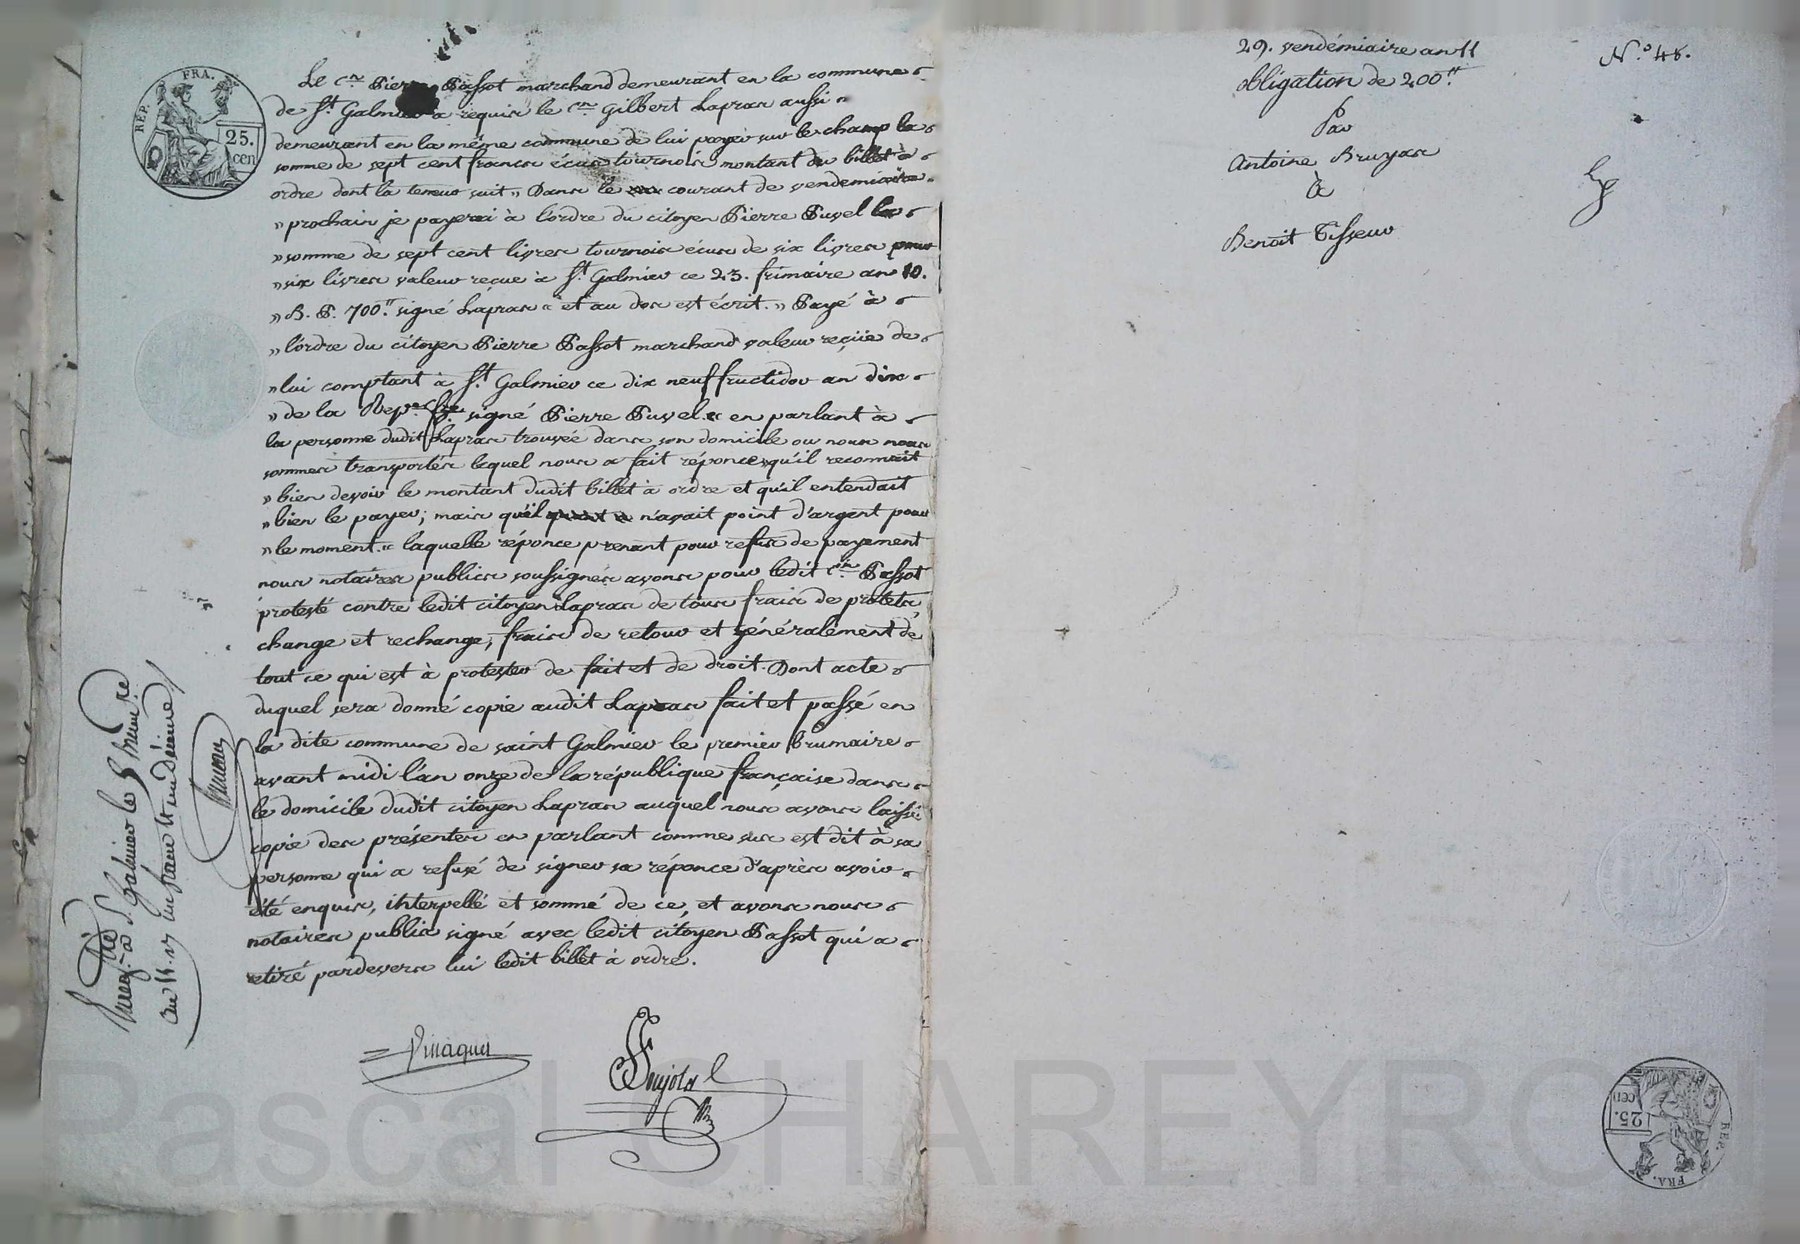 RÉP. FRA.
25.
cen
Le c.en Pierre Passot marchand demeurant en la commune
de S.t Galmier a requis le c.en Gilbert Lapras aussi
demeurant en la même commune de lui payer sur le champ la
somme de sept cent francs écus tournois montant du billet à
ordre dont la teneur suit » Dans le courant de vendemiaire
» prochain je payerai à l'ordre du citoyen Pierre Puvel la
» somme de sept cent livres tournois écus de six livres pour
» six livres valeur reçue à S.t Galmier ce 23. frimaire an 10.
» B. P. 700.tt signé Lapras « et au dos est écrit. » Payé à
» l'ordre du citoyen Pierre Passot marchand valeur reçüe de
» lui comptant à S.t Galmier ce dix neuf fructidor an dix
» de la Rep.e signé Pierre Puvel. « en parlant à
la personne dudit Lapras trouvée dans son domicile ou nous nous
sommes transportés lequel nous a fait réponce » qu'il reconnait
» bien devoir le montant dudit billet à ordre et qu'il entendait
» bien le payer; mais qu'il n'avait point d'argent pour
» le moment. « laquelle réponce prenant pour refus de payement
nous notaires publics soussignés avons pour ledit c.en Passot
protesté contre ledit citoyen Lapras de tous frais de protets,
change et rechange, frais de retour et généralement de
tout ce qui est à protester de fait et de droit. Dont acte
duquel sera donné copie audit Lapras fait et passé en
la dite commune de saint Galmier le premier brumaire
avant midi l'an onze de la république française dans
le domicile dudit citoyen Lapras auquel nous avons laissé
copie des présentes en parlant comme sus est dit à sa
personne qui a refusé de signer sa réponce d'après avoir
été enquis, interpellé et sommé de ce, et avons nous
notaires publics signé avec ledit citoyen Passot qui a
retiré pardevers lui ledit billet à ordre.
Enreg.tré à S.t Galmier le 5 Brum.re
an 11. un franc et un décime
29. vendémiaire an 11
obligation de 200.tt
Par
Antoine Bruyas
à
Benoit Tisseur
N.o 48.
RÉP. FRA.
25.
cen
Pascal CHAREYRON